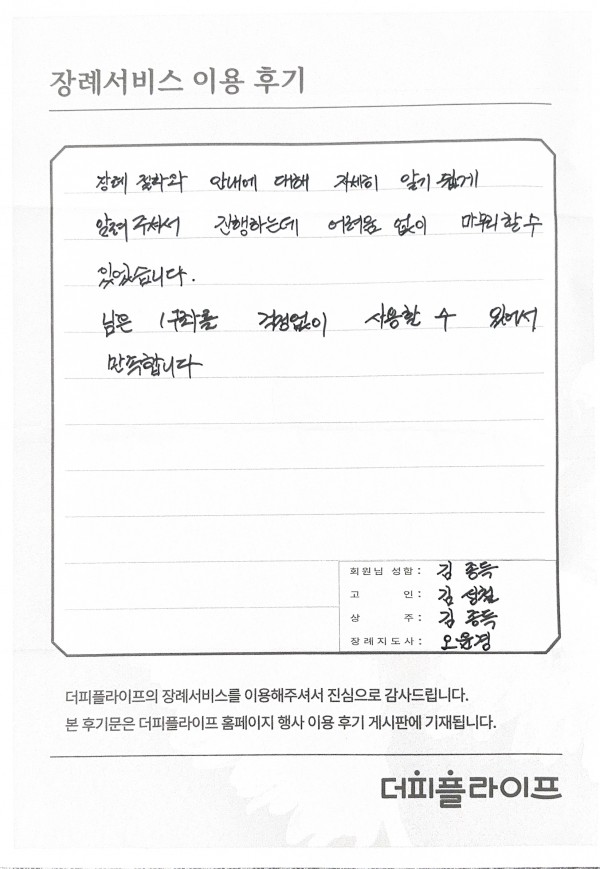 장례서비스 이용 후기
장례 절차와 안내에 대해 자세히 알기 쉽게
알려 주셔서 진행하는데 어려움 없이 마무리할 수
있었습니다.
남은 1구좌를 걱정없이 사용할 수 있어서
만족합니다
회원님 성함 : 김종득
고 인 : 김성철
상 주 : 김종득
장례지도사 : 오윤경
더피플라이프의 장례서비스를 이용해주셔서 진심으로 감사드립니다.
본 후기문은 더피플라이프 홈페이지 행사 이용 후기 게시판에 기재됩니다.
더피플라이프